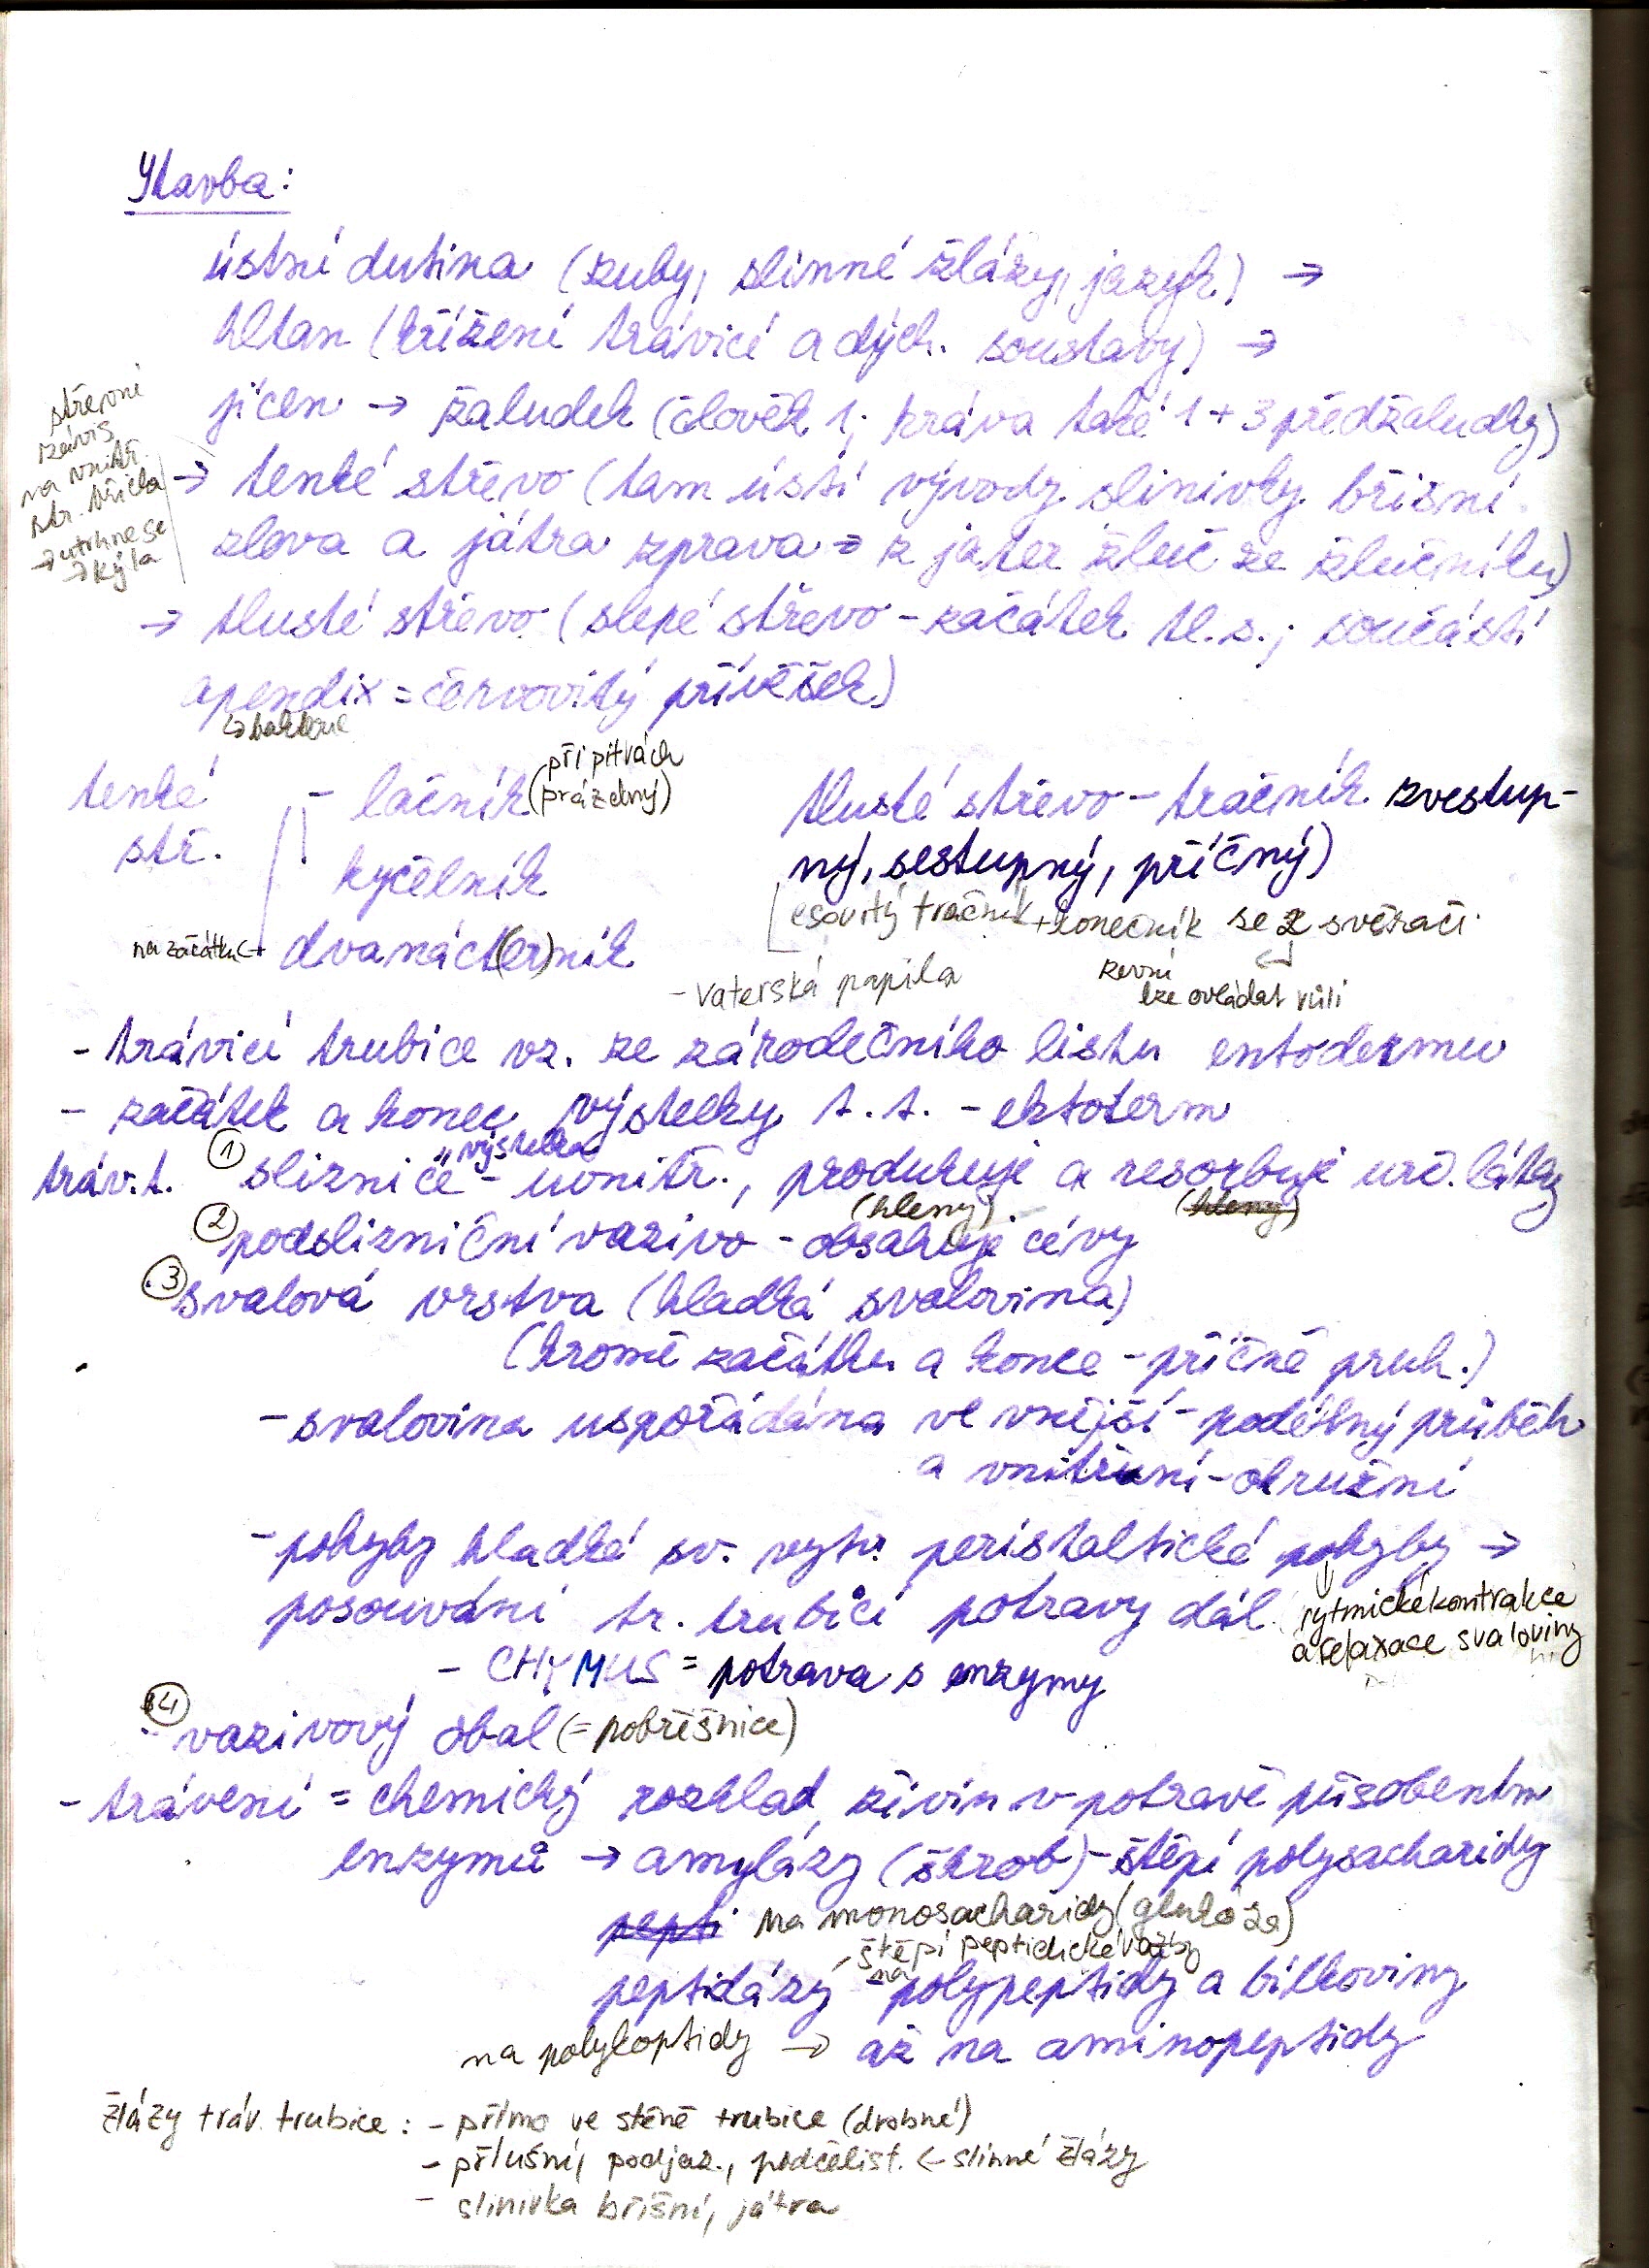 Stavba:
ústní dutina (zuby, slinné žlázy, jazyk) →
hltan (křížení trávicí a dých. soustavy) →
jícen → žaludek (člověk 1; kráva také 1 + 3 předžaludky)
střevní
závis
na vnitř.
str. břicha
→ utrhne se
→ kýla
→ tenké střevo (tam ústí vývody slinivky břišní
zleva a játra zprava → z jater žluč ze žlučníku)
→ tlusté střevo (slepé střevo - začátek tl. s.; součástí
apendix = červovitý přívěšek)
↳ bakterie
tenké
stř.
- lačník (při pitvách
prázdný)
kyčelník
na začátku ← dvanáct(er)ník
tlusté střevo - tračník vzestup-
ný, sestupný, příčný)
esovitý tračník + konečník se 2 svěrači
zevní
lze ovládat vůlí
- Vaterská papila
- trávicí trubice vz. ze zárodečního listu entodermu
- začátek a konec výstelky t. t. - ektoterm
tráv. t. ① sliznice - uvnitř., produkuje a resorbuje urč. látky
"výstelka
(hleny) (hleny)
② podslizniční vazivo - obsahuje cévy
③ svalová vrstva (hladká svalovina)
(kromě začátku a konce - příčně pruh.)
- svalovina uspořádána ve vnější - podélný průběh
a vnitřní - okružní
- pohyby hladké sv. vytv. peristaltické pohyby →
posouvání tr. trubicí potravy dál
↓ rytmické kontrakce
a relaxace svaloviny
- CHYMUS = potrava s enzymy
④ vazivový obal (= pobřišnice)
- trávení = chemický rozklad živin v potravě působením
enzymů → amylázy (škrob) - štěpí polysacharidy
pepti na monosacharidy (glukóza)
- štěpí peptidické vazby
na
peptidázy - polypeptidy a bílkoviny
na polykoptidy → až na aminopeptidy
žlázy tráv. trubice: - přímo ve stěně trubice (drobné)
- příušní, podjaz., podčelist. ← slinné žlázy
- slinivka břišní, játra